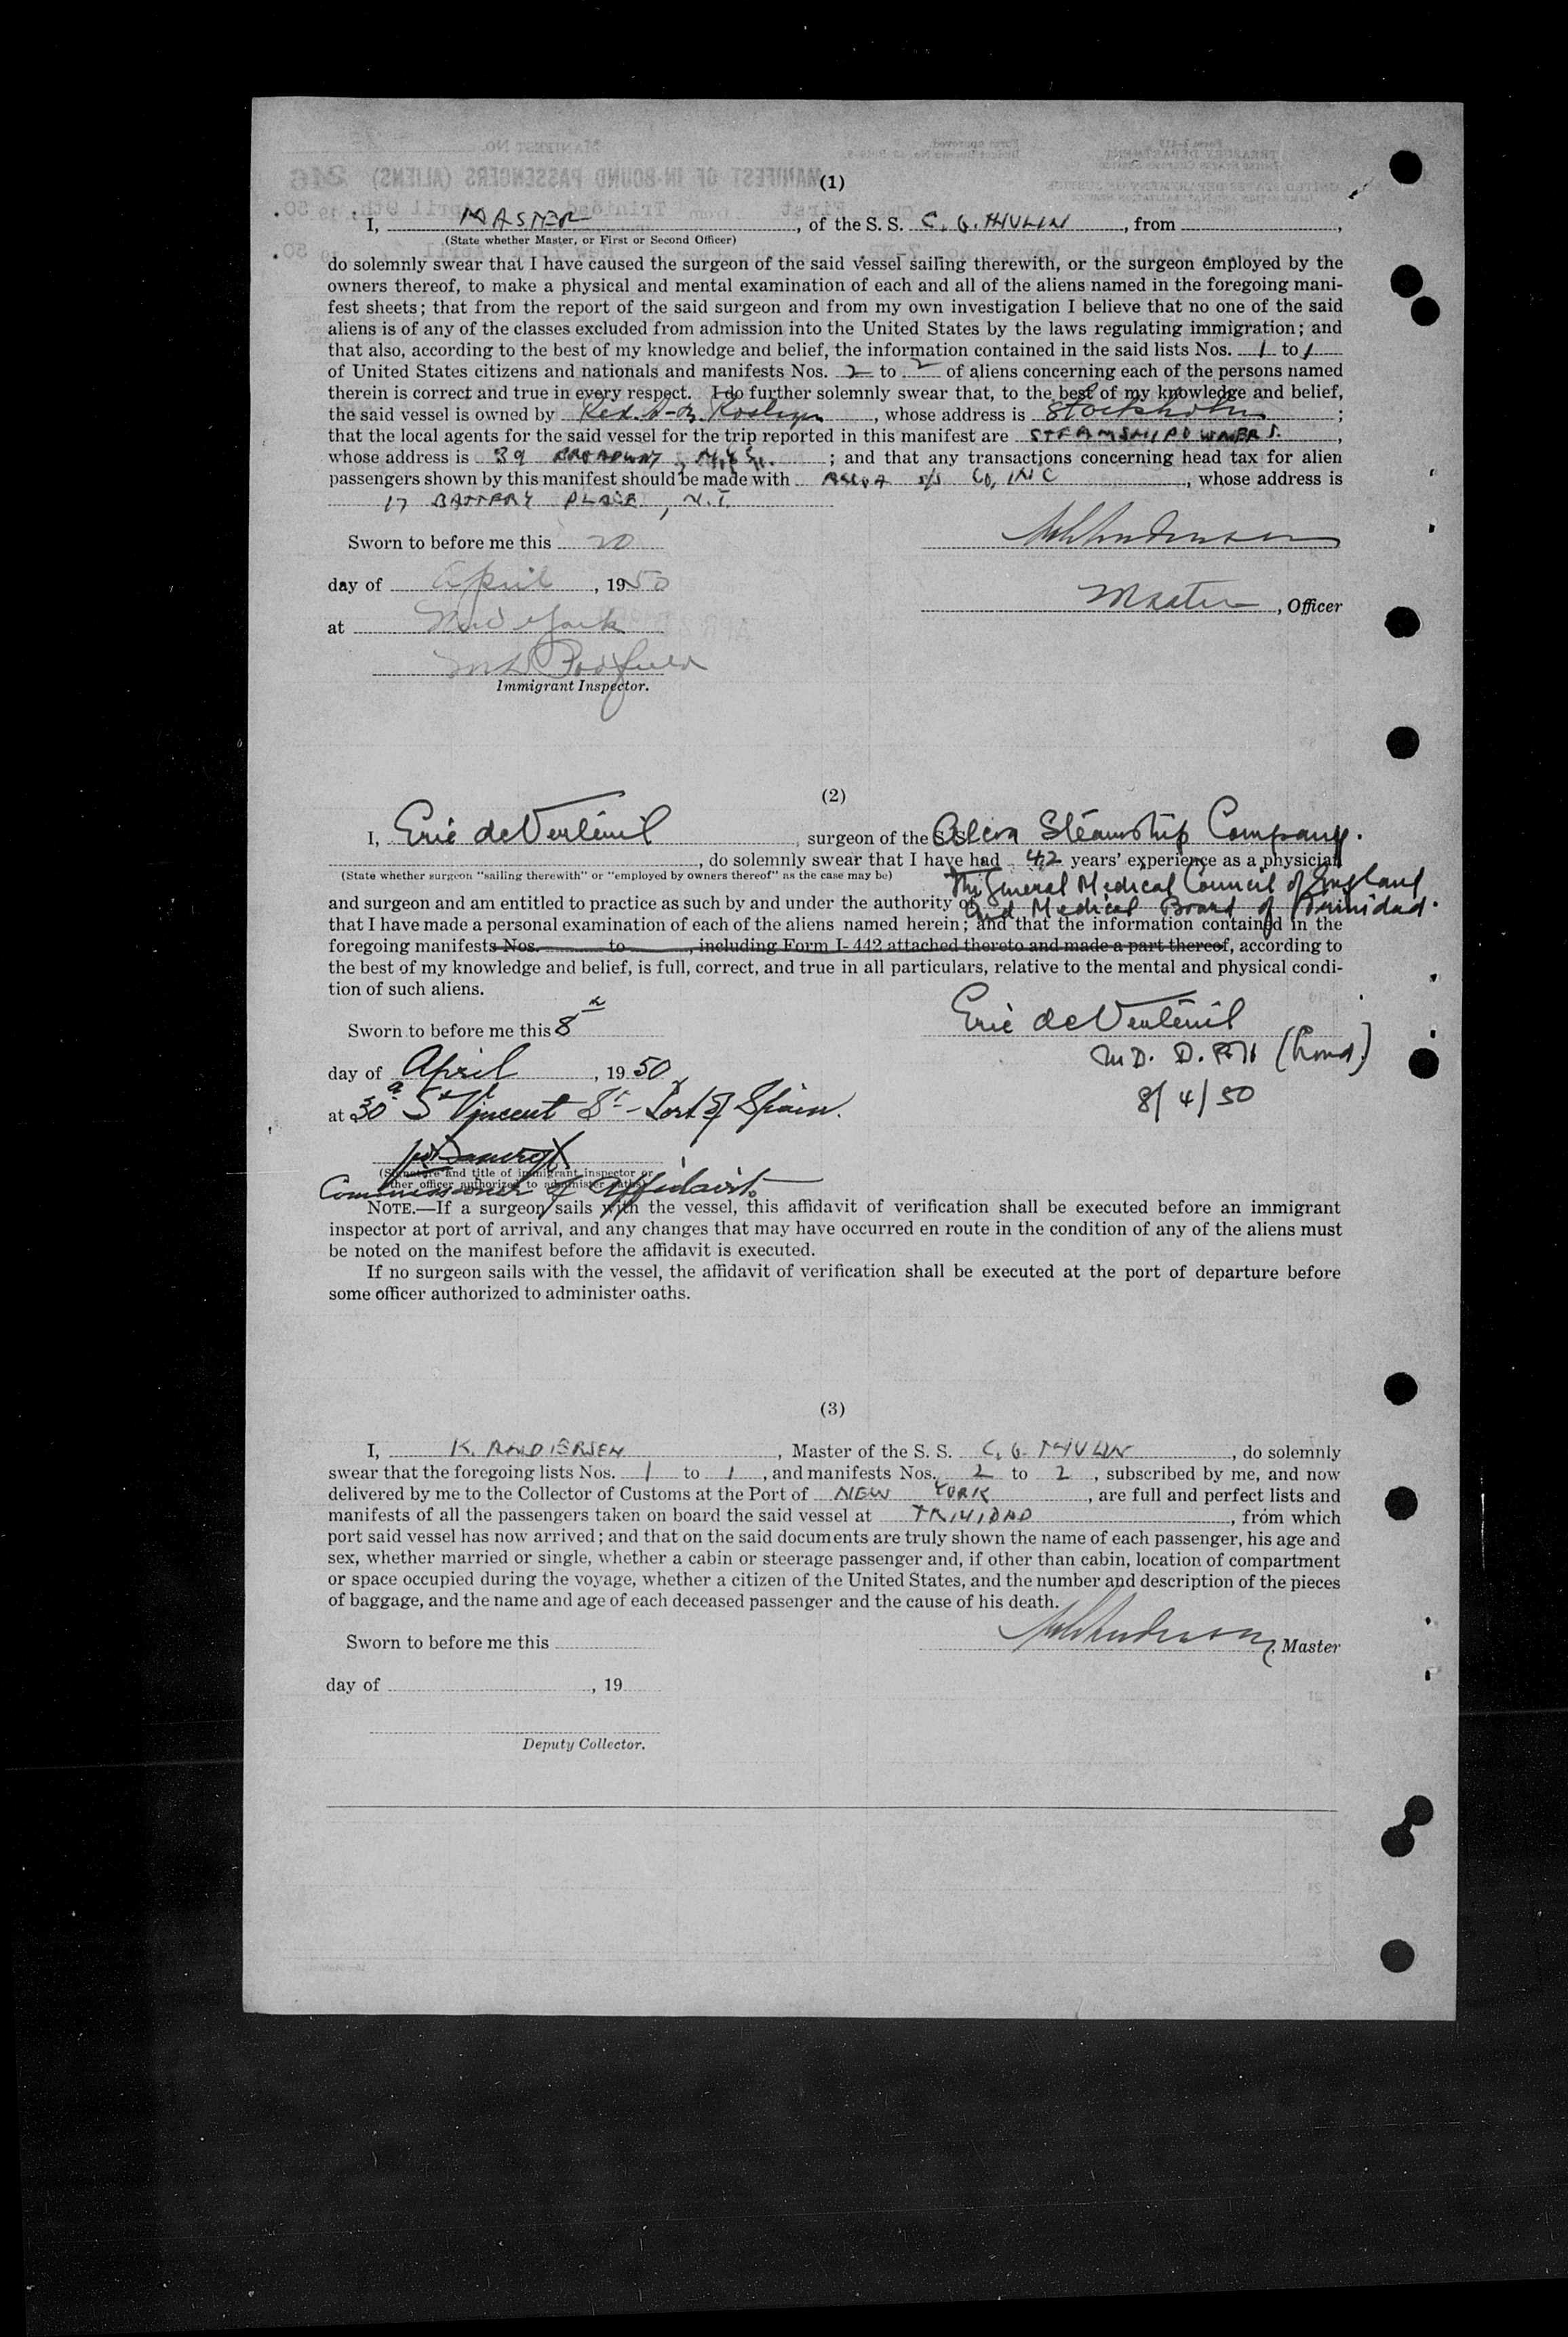 (1)
I, MASTER, of the S. S. C. G. THULIN, from
(State whether Master, or First or Second Officer)
do solemnly swear that I have caused the surgeon of the said vessel sailing therewith, or the surgeon employed by the
owners thereof, to make a physical and mental examination of each and all of the aliens named in the foregoing mani-
fest sheets; that from the report of the said surgeon and from my own investigation I believe that no one of the said
aliens is of any of the classes excluded from admission into the United States by the laws regulating immigration; and
that also, according to the best of my knowledge and belief, the information contained in the said lists Nos. 1 to 1
of United States citizens and nationals and manifests Nos. 2 to 2 of aliens concerning each of the persons named
therein is correct and true in every respect. I do further solemnly swear that, to the best of my knowledge and belief,
the said vessel is owned by Red. A-B., whose address is Stockholm;
that the local agents for the said vessel for the trip reported in this manifest are STEAMSHIPOWNERS.,
whose address is 39 BROADWAY,; and that any transactions concerning head tax for alien
passengers shown by this manifest should be made with s/s Co, INC, whose address is
17 BATTERY PLACE, N.Y.
Sworn to before me this 20
day of April, 1950
Master, Officer
at New York
Immigrant Inspector.
(2)
I, Eric de Verteuil, surgeon of the S. S. Alcoa Steamship Company.
, do solemnly swear that I have had 42 years' experience as a physician
(State whether surgeon "sailing therewith" or "employed by owners thereof" as the case may be)
The General Medical Council of England
and surgeon and am entitled to practice as such by and under the authority of
and Medical Board of Trinidad.
that I have made a personal examination of each of the aliens named herein; and that the information contained in the
foregoing manifests Nos. to , including Form I-442 attached thereto and made a part thereof, according to
the best of my knowledge and belief, is full, correct, and true in all particulars, relative to the mental and physical condi-
tion of such aliens.
Eric de Verteuil
Sworn to before me this 8th
M.D. D.P.H (Lond.)
day of April, 1950
8/4/50
at 30a St Vincent St - Port of Spain.
(Signature and title of immigrant inspector or
other officer authorized to administer oaths)
Commissioner of Affidavits.
NOTE.—If a surgeon sails with the vessel, this affidavit of verification shall be executed before an immigrant
inspector at port of arrival, and any changes that may have occurred en route in the condition of any of the aliens must
be noted on the manifest before the affidavit is executed.
If no surgeon sails with the vessel, the affidavit of verification shall be executed at the port of departure before
some officer authorized to administer oaths.
(3)
I, K. ANDERSEN, Master of the S. S. C. G. THULIN, do solemnly
swear that the foregoing lists Nos. 1 to 1, and manifests Nos. 2 to 2, subscribed by me, and now
delivered by me to the Collector of Customs at the Port of NEW YORK, are full and perfect lists and
manifests of all the passengers taken on board the said vessel at TRINIDAD, from which
port said vessel has now arrived; and that on the said documents are truly shown the name of each passenger, his age and
sex, whether married or single, whether a cabin or steerage passenger and, if other than cabin, location of compartment
or space occupied during the voyage, whether a citizen of the United States, and the number and description of the pieces
of baggage, and the name and age of each deceased passenger and the cause of his death.
Sworn to before me this
, Master
day of , 19
Deputy Collector.